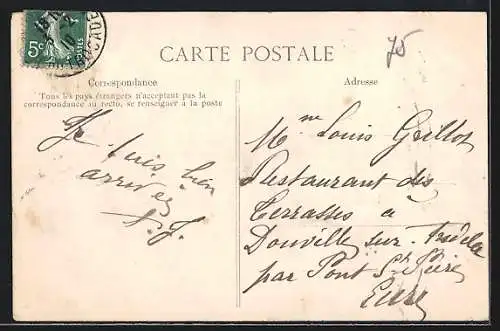 5c
POSTES
75
CARTE POSTALE
Correspondance
Tous les pays étrangers n'acceptant pas la
correspondance au recto, se renseigner à la poste
Je suis bien
arrivé
Adresse
Mme Louis Grillot
Restaurant des
Terrasses a
Douville sur
par Pont St Pierre
Eure